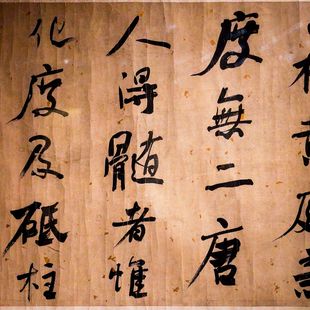 黄庭
度無二唐
人得髓者惟
化度及砥柱